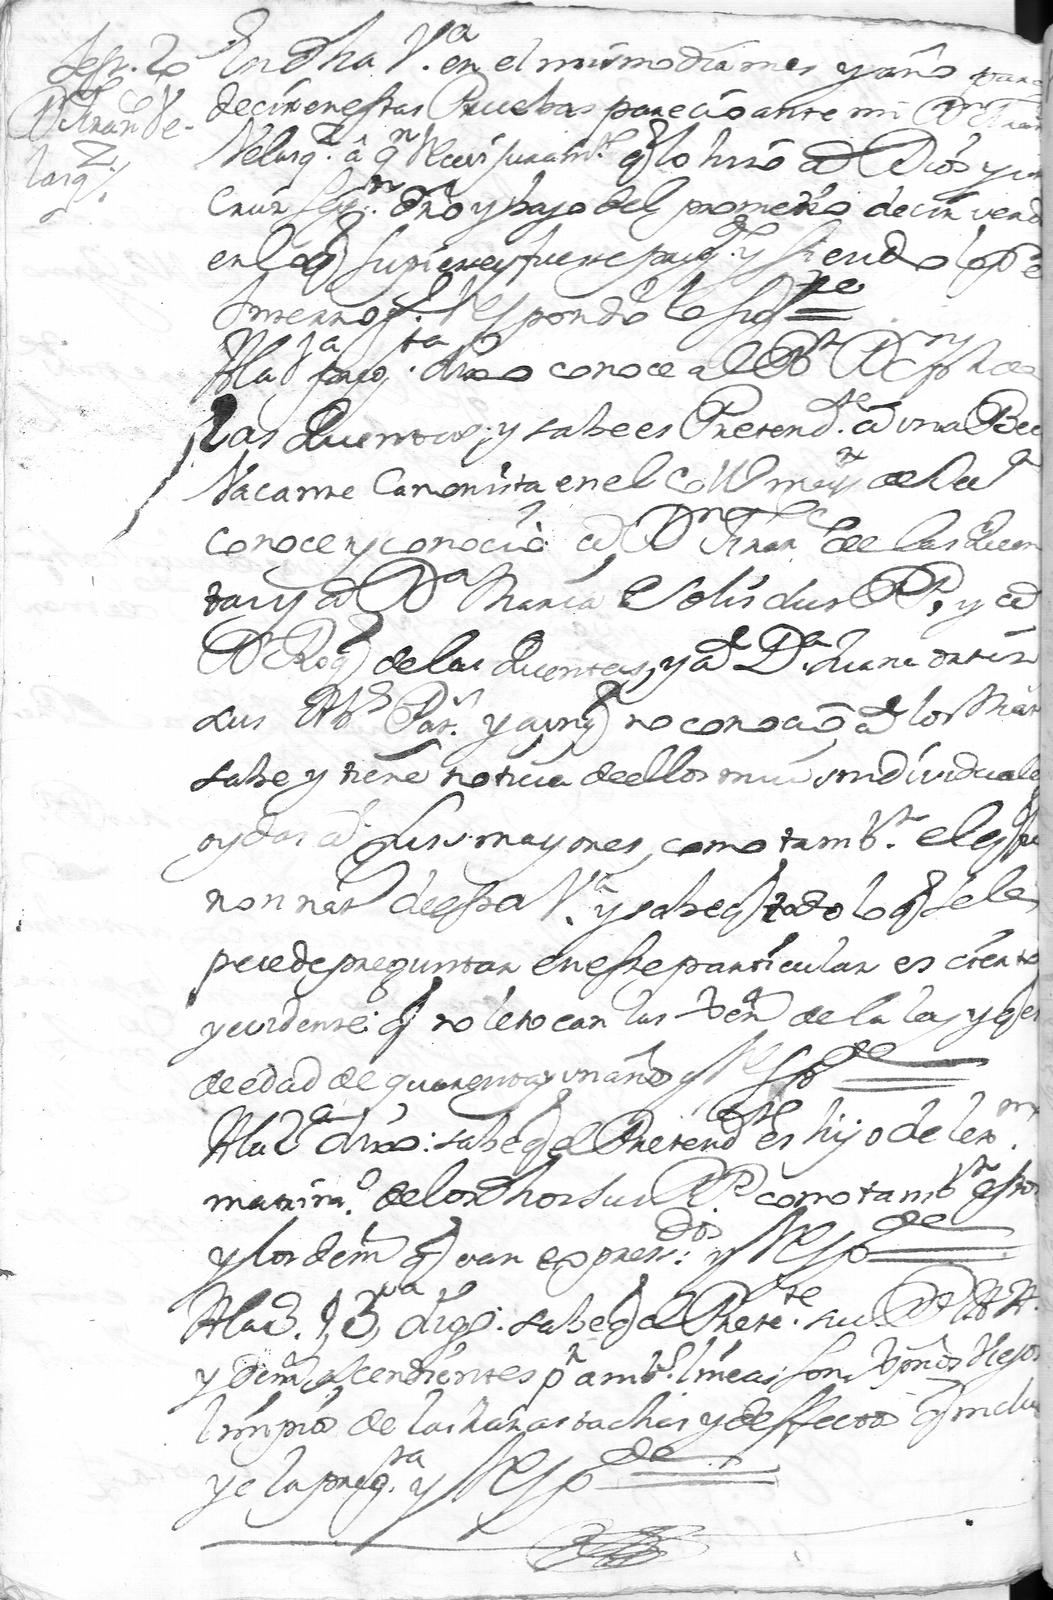 Dn Fran.co Ve-
lasq.z
En dha V.a en el mismo dia mes y año para
decir en estas Pruebas parecio ante mi Dn Fran
Velasq.z â q.n Recivi juram.to q lo hizo a Dios y una
Cruz seg.n dro y bajo del prometio decir verd
en lo q supiere y fuere preg.do y siendo lo p.r el
Interrog. Respondio lo sig.te
A la 1.a preg.ta dixo conoce al Dn
las Quentas; y sabe es Pretend.te â una Bec
Vacante Canonista en el Coll mayr de
conoce y conocio â Dn Fran.co de las Quen
tas y â D.a Maria Solis sus PP, y â
Dn Roq de las Quentas, y â D.a Juana Ortiz
sus Ab.s Pat.s y aunq no conocio, â los Mat
sabe y tiene noticia de ellos mui individuale
oydas â sus mayores, como tamb.n el es
non nat de esta V.a y sabe q todo lo q se le
puede preguntar en este particular es cierto
y evidente: q no le tocan las Gen de la ley y q es
de edad de quarenta y un años y Resp.de
A la 2.a dixo: sabe q el Pretend.te es hijo de lex.mo
matrim.o de los dhos sus PP. como tamb.n estos
y los dem q van expres.dos y Resp.de
A la 3.a dixo: sabe q el Prete.te sus P.s AA.
y dem ascendientes p.r amb.s lineas son, Xpnos Viejos
limpios de las Razas tachas y defectos q inclu
ye la preg.ta y Resp.de